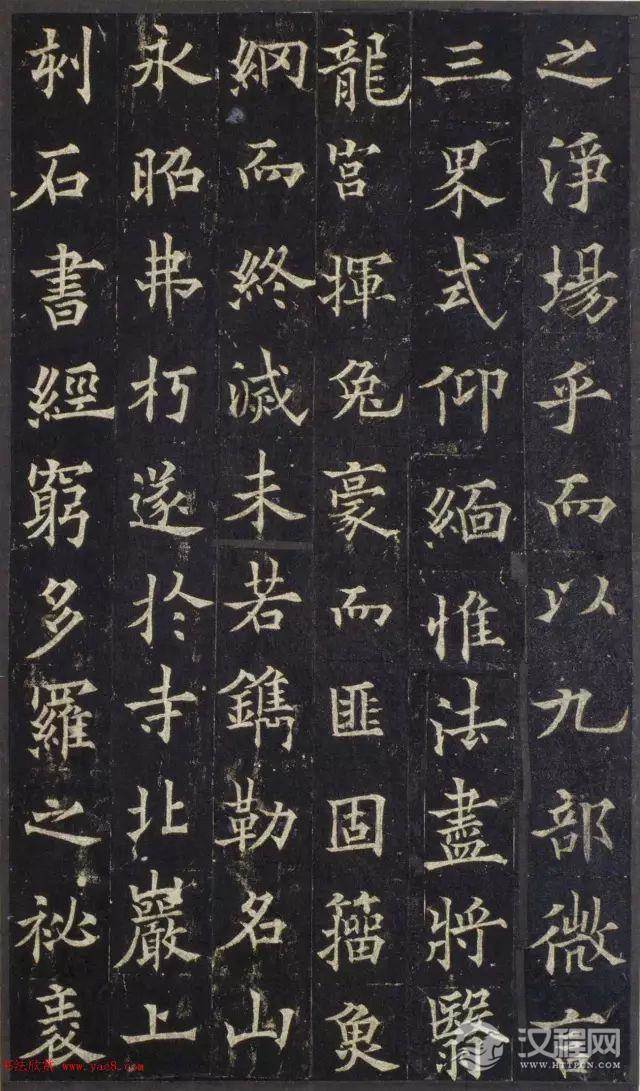 之淨場乎而以九部微言
三界式仰緬惟法盡將翳
龍宮揮兔豪而匪固籀魚
網而終滅未若鐫勒名山
永昭弗朽遂於寺北巖上
刾石書經窮多羅之祕裹
汉程网
HTTPCN.COM
书法欣赏 www.yac8.com